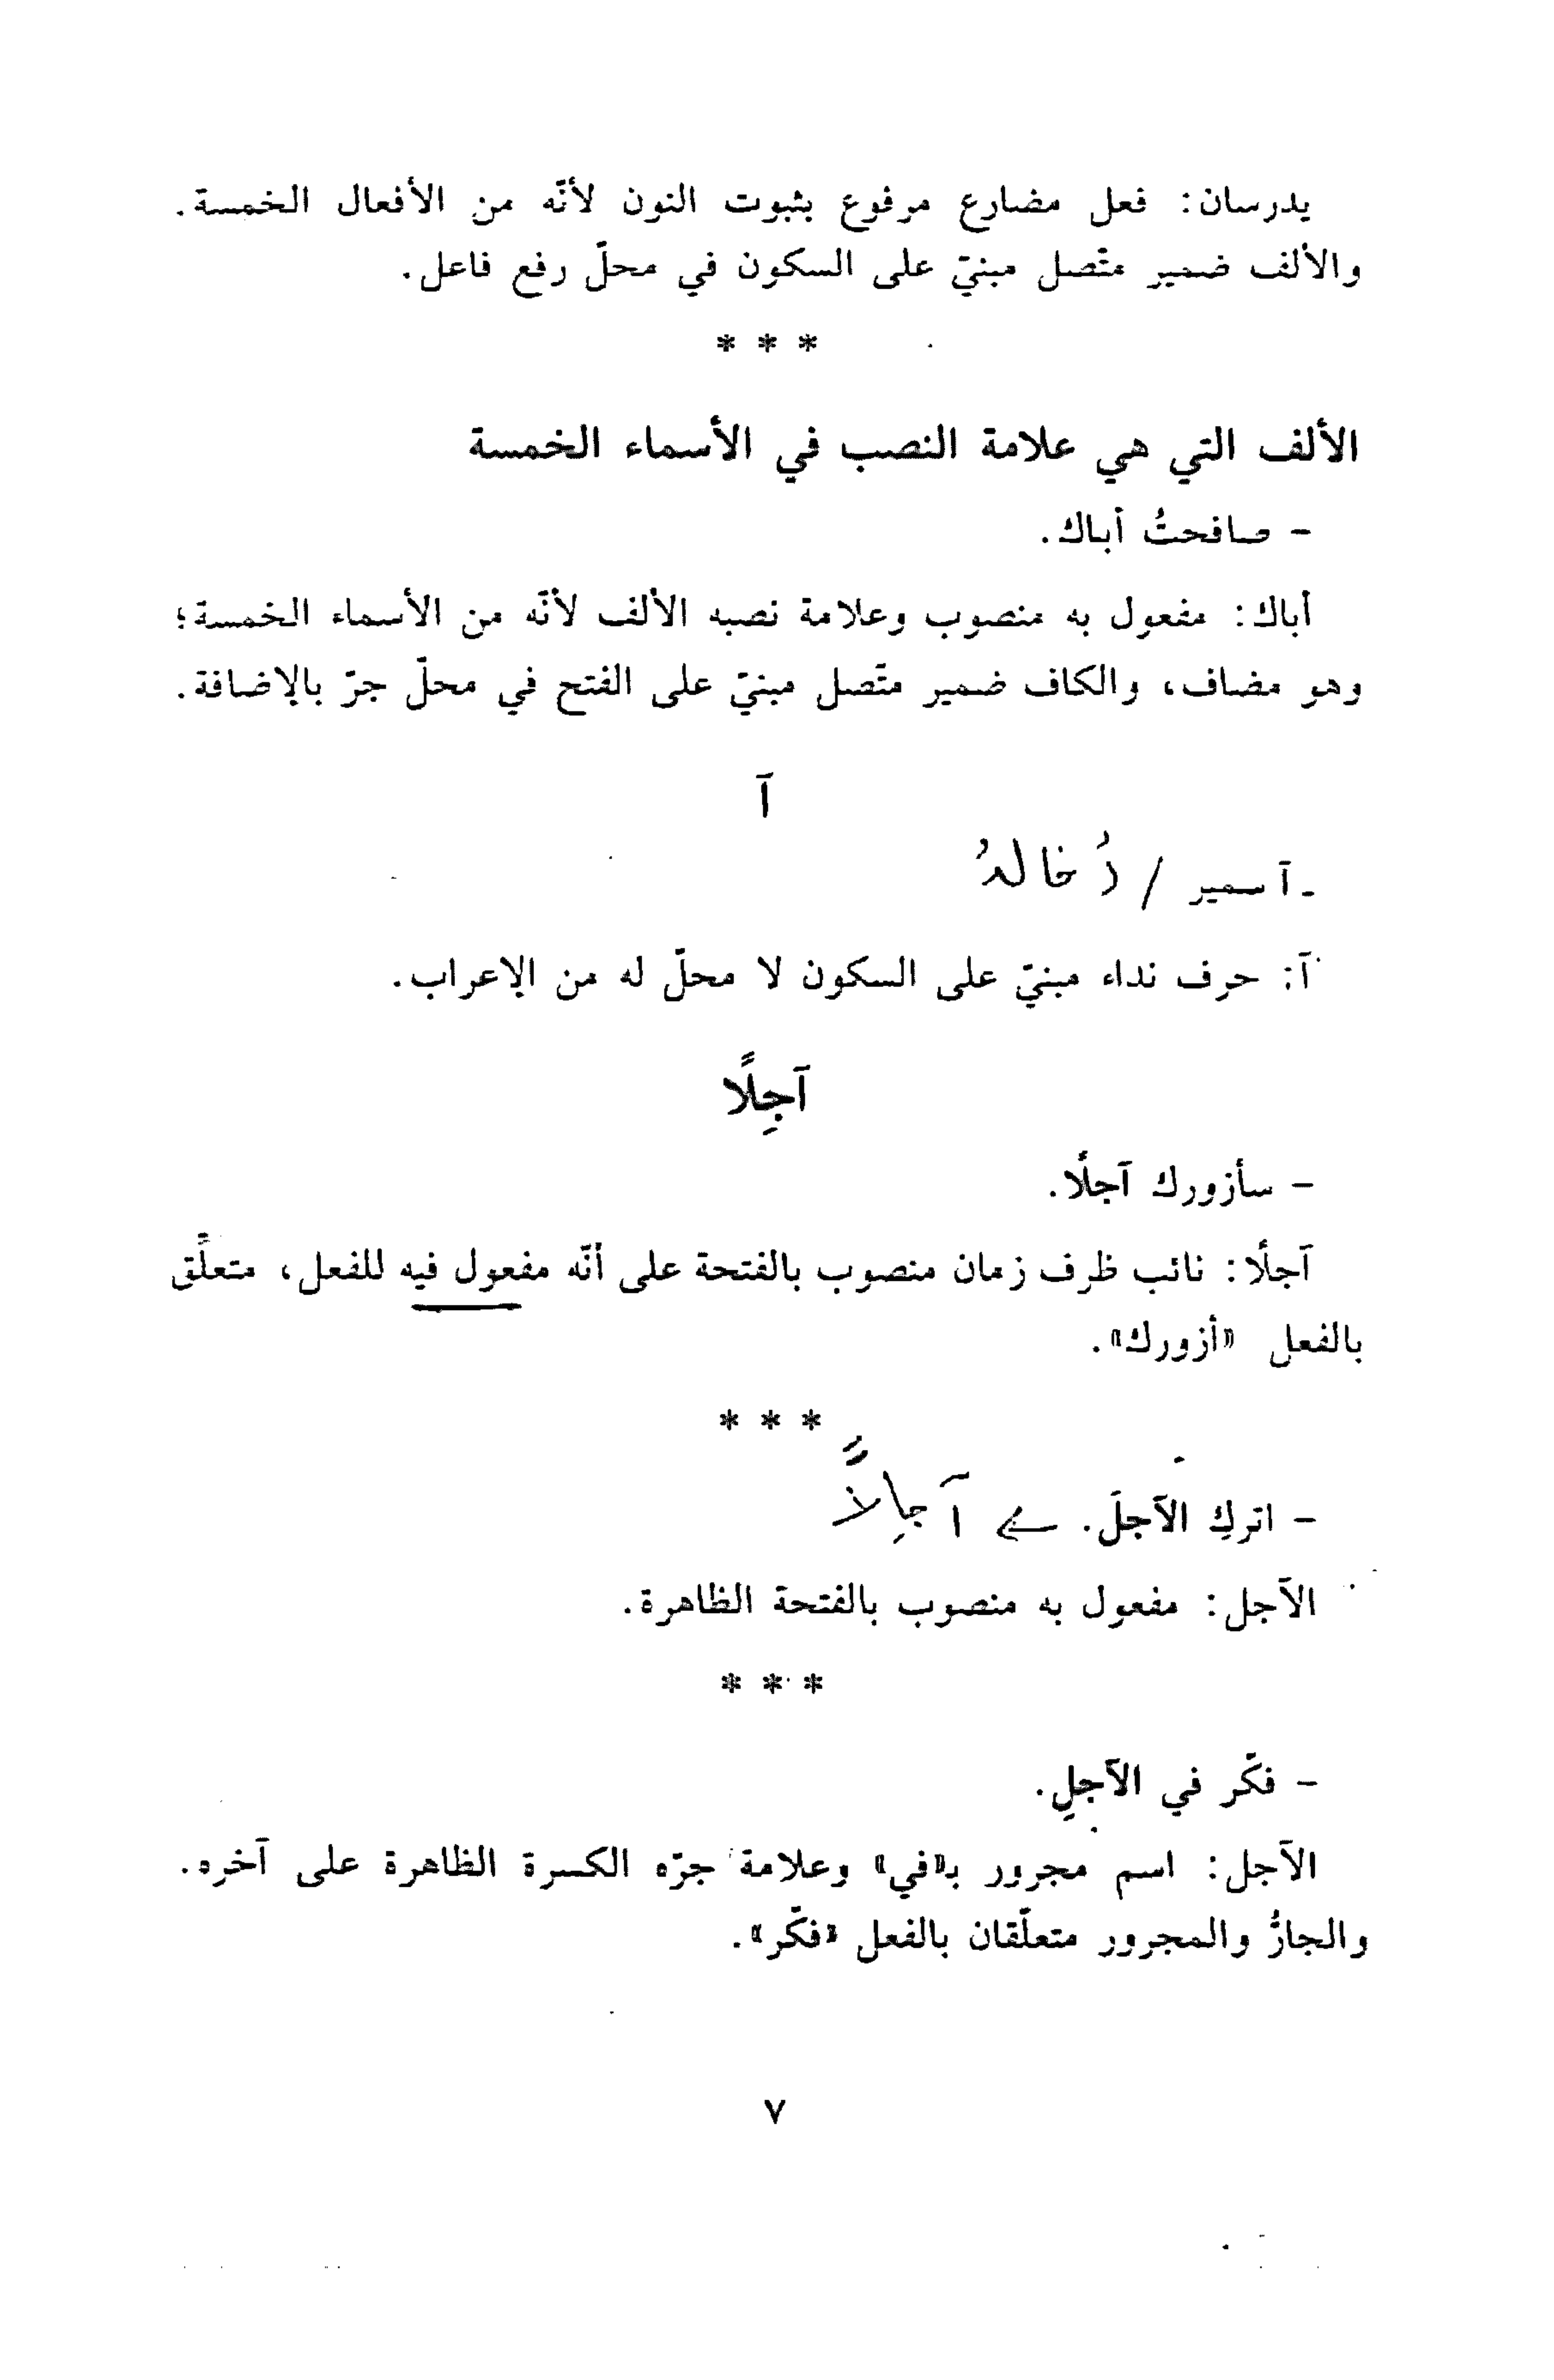 يدرسان: فعل مضارع مرفوع بثبوت النون لأنّه من الأفعال الخمسة.
والألف ضمير متّصل مبنيّ على السكون في محلّ رفع فاعل.
* * *
الألف التي هي علامة النصب في الأسماء الخمسة
- صافحتُ أباك.
أباك: مفعول به منصوب وعلامة نصبه الألف لأنّه من الأسماء الخمسة؛
وهو مضاف، والكاف ضمير متّصل مبنيّ على الفتح في محلّ جرّ بالإضافة.
آ
- آ سمير / خالدُ
آ: حرف نداء مبنيّ على السكون لا محلّ له من الإعراب.
آجِلًا
- سأزورك آجلًا.
آجلًا: نائب ظرف زمان منصوب بالفتحة على أنّه مفعول فيه للفعل، متعلِّق
بالفعل «أزورك».
* * *
- اتركِ الآجلَ. آجِلاً
الآجل: مفعول به منصوب بالفتحة الظاهرة.
* * *
- فكّر في الآجلِ.
الآجل: اسم مجرور بـ«في» وعلامة جرّه الكسرة الظاهرة على آخره.
والجارُّ والمجرور متعلّقان بالفعل «فكّر».
٧